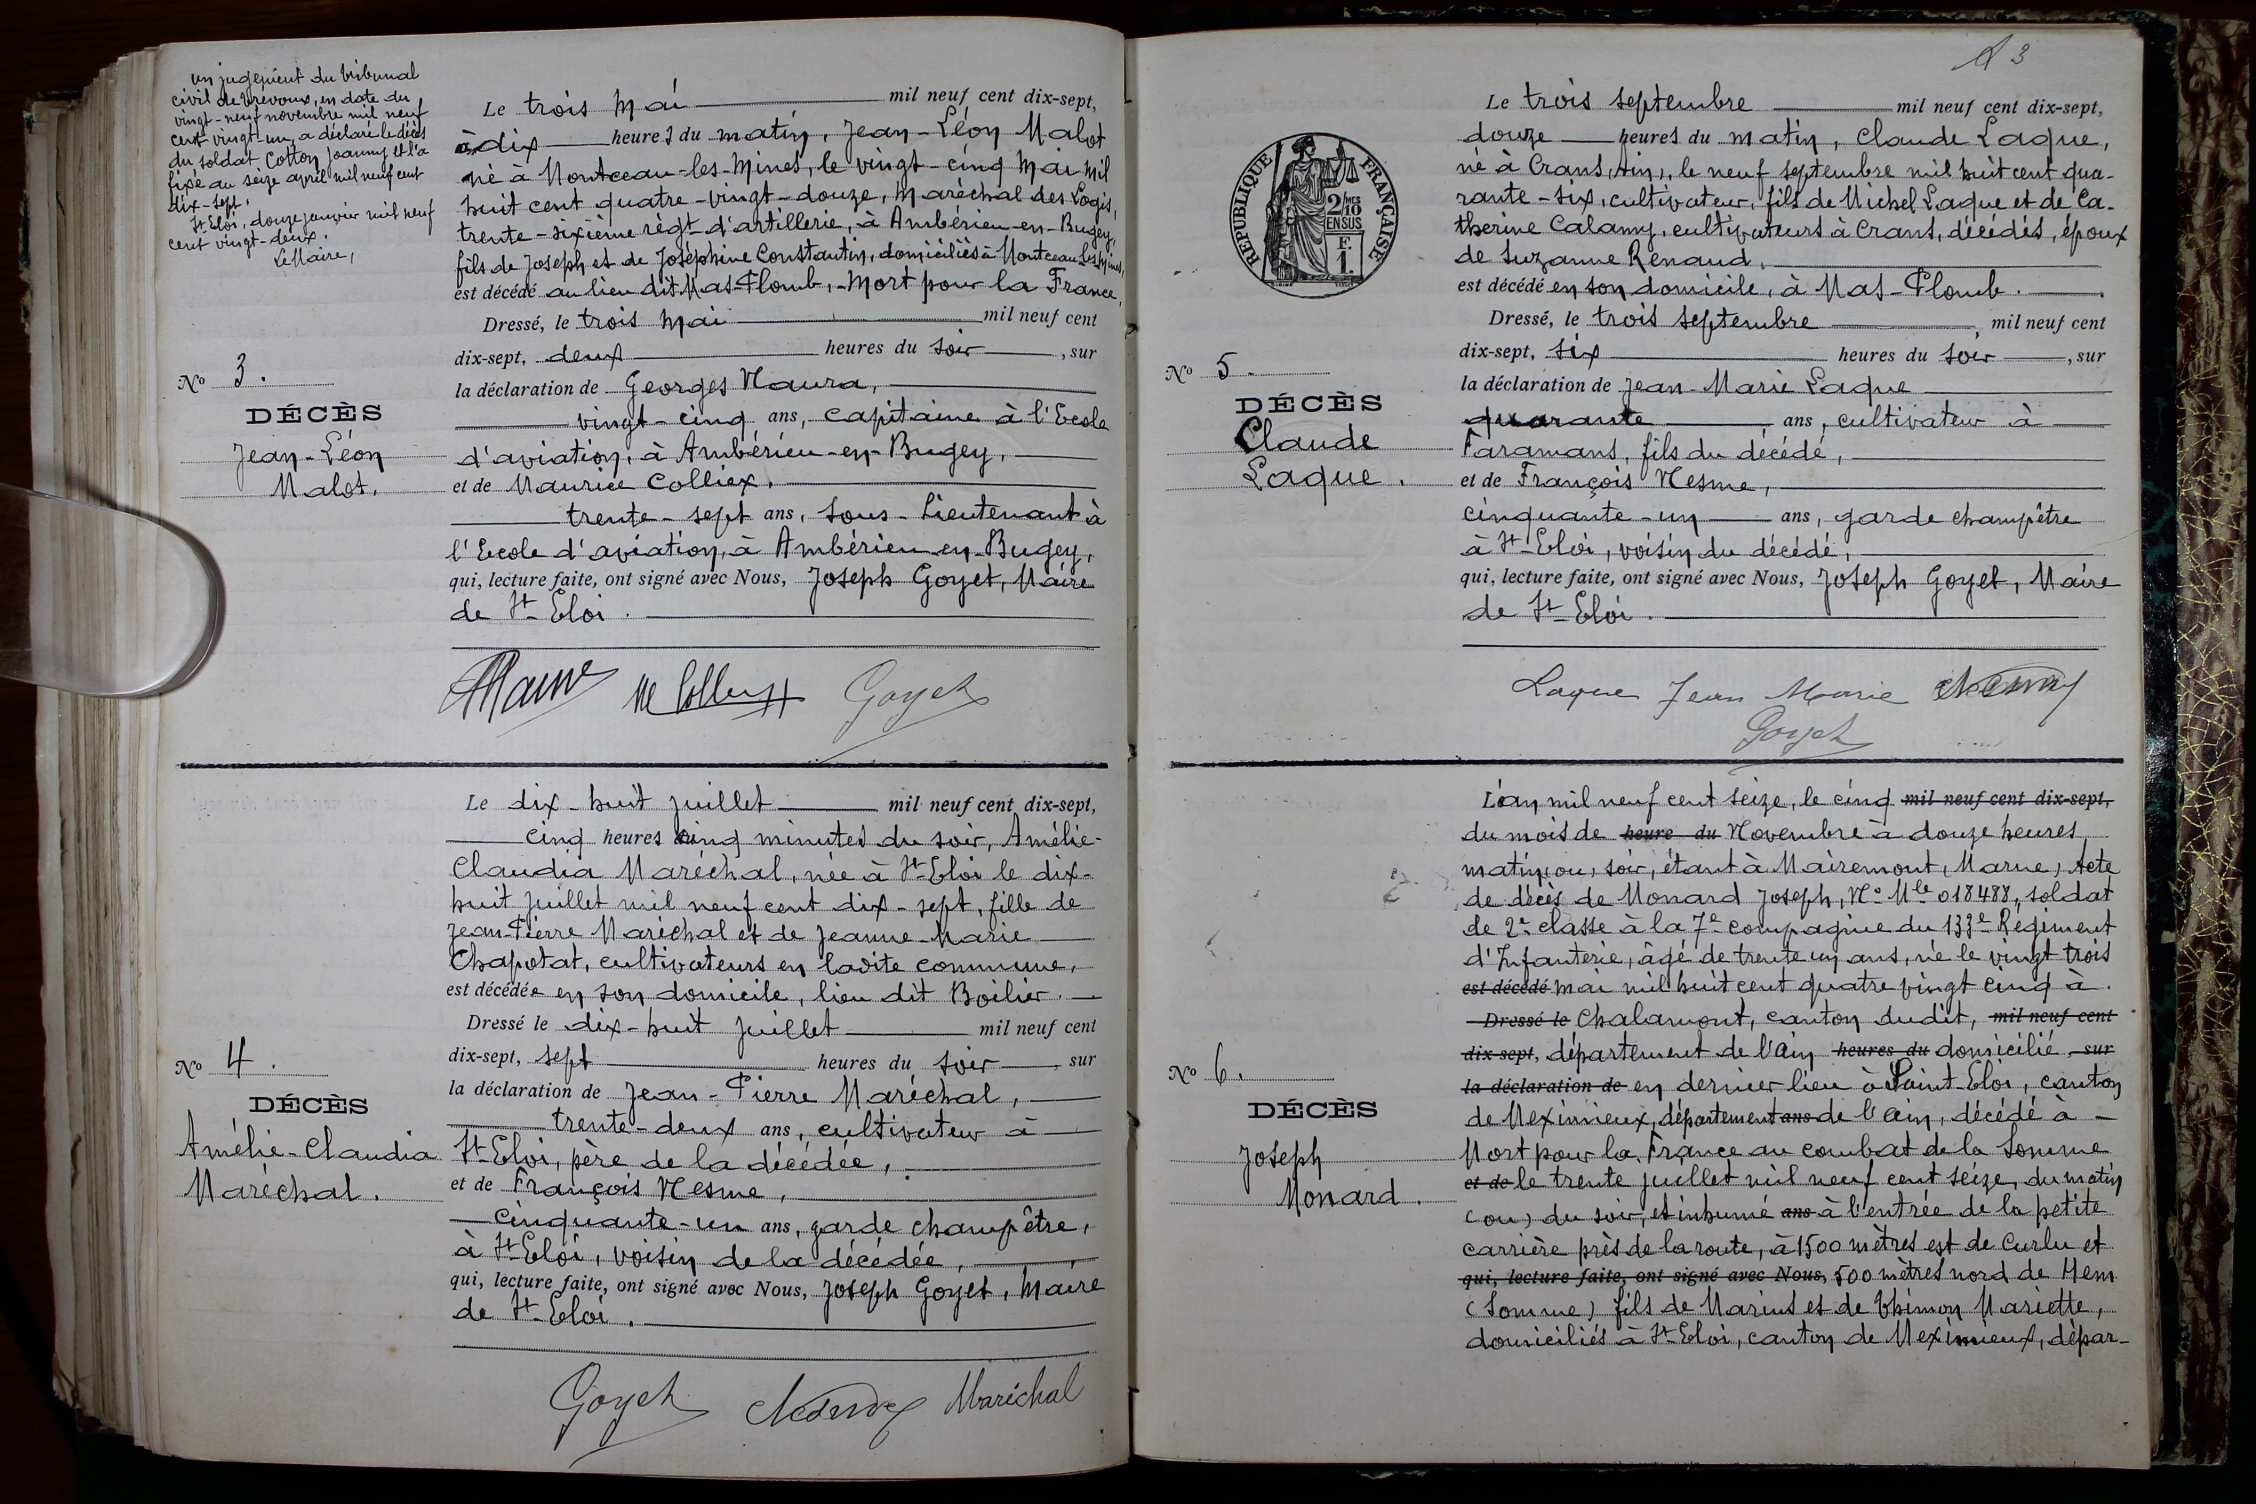 un jugement du tribunal
civil de Trévoux, en date du
vingt-neuf novembre mil neuf
cent vingt-un, a déclaré le décès
du soldat Cotton Joanny et l'a
fixé au seize avril mil neuf cent
dix-sept.
St Eloi, douze janvier mil neuf
cent vingt-deux.
Le Maire,
Le trois Mai mil neuf cent dix-sept,
à dix heures du matin, Jean-Léon Malot
né à Montceau-les-Mines, le vingt-cinq Mai mil
huit cent quatre-vingt-douze, Maréchal des Logis,
trente-sixième règt d'artillerie, à Ambérieu-en-Bugey,
fils de Joseph et de Joséphine Constantin, domiciliés à Montceau Les Mines,
est décédé au lieu dit Mas-Plomb, Mort pour la France,
Dressé, le trois Mai mil neuf cent
dix-sept, deux heures du soir, sur
la déclaration de Georges Maura,
vingt-cinq ans, capitaine à l'Ecole
d'aviation, à Ambérieu-en-Bugey,
et de Maurice Colliex,
trente-sept ans, Sous-Lieutenant à
l'Ecole d'aviation, à Ambérieu-en-Bugey,
qui, lecture faite, ont signé avec Nous, Joseph Goyet, Maire
de St-Eloi.
No 3.
DÉCÈS
Jean-Léon
Malot.
M Colliex Goyet
Le dix-huit juillet mil neuf cent dix-sept,
cinq heures cinq minutes du soir, Amélie-
Claudia Maréchal, née à St-Eloi le dix-
huit juillet mil neuf cent dix-sept, fille de
Jean-Pierre Maréchal et de Jeanne-Marie
Chapotat, cultivateurs en ladite commune,
est décédée en son domicile, lieu dit Boilier.
Dressé le dix-huit juillet mil neuf cent
dix-sept, sept heures du soir, sur
la déclaration de Jean-Pierre Maréchal,
trente-deux ans, cultivateur à
St-Eloi, père de la décédée,
et de François Nesme,
cinquante-un ans, garde champêtre,
à St-Eloi, voisin de la décédée,
qui, lecture faite, ont signé avec Nous, Joseph Goyet, Maire
de St-Eloi.
No 4.
DÉCÈS
Amélie-Claudia
Maréchal.
Goyet Nesme Maréchal
3
RÉPUBLIQUE FRANÇAISE
2/10 MES
EN SUS
F.
1.
Le trois septembre mil neuf cent dix-sept,
douze heures du matin, Claude Laque,
né à Crans, Ain, le neuf septembre mil huit cent qua-
rante-six, cultivateur, fils de Michel Laque et de Ca-
therine Calamy, cultivateurs à Crans, décédés, époux
de Suzanne Renaud,
est décédé en son domicile, à Mas-Plomb.
Dressé, le trois septembre mil neuf cent
dix-sept, six heures du soir, sur
la déclaration de Jean-Marie Laque
quarante ans, cultivateur à
Faramans, fils du décédé,
et de François Nesme,
cinquante-un ans, garde champêtre
à St-Eloi, voisin du décédé,
qui, lecture faite, ont signé avec Nous, Joseph Goyet, Maire
de St-Eloi.
No 5.
DÉCÈS
Claude
Laque.
Laque Jean Marie Nesme
Goyet
L'an mil neuf cent seize, le cinq mil neuf cent dix-sept,
du mois de heure du Novembre à douze heures
matin, ou, soir, étant à Mairemont, Marne, Acte
de décès de Monard Joseph, No Mle 018488, soldat
de 2e classe à la 7e compagnie du 133e Régiment
d'Infanterie, âgé de trente un ans, né le vingt trois
est décédé mai mil huit cent quatre vingt cinq à
Dressé le Chalamont, canton dudit, mil neuf cent
dix-sept, département de l'Ain heures du domicilié, sur
la déclaration de en dernier lieu à Saint-Eloi, canton
de Meximieux, département ans de l'Ain, décédé à
Mort pour la France au combat de la Somme
et de le trente juillet mil neuf cent seize, du matin
(ou) du soir, et inhumé ans à l'entrée de la petite
carrière près de la route, à 1500 mètres est de Curlu et
qui, lecture faite, ont signé avec Nous, 500 mètres nord de Hem
(Somme) fils de Marius et de Thimon Mariette,
domiciliés à St-Eloi, canton de Meximieux, dépar-
No 6.
DÉCÈS
Joseph
Monard.